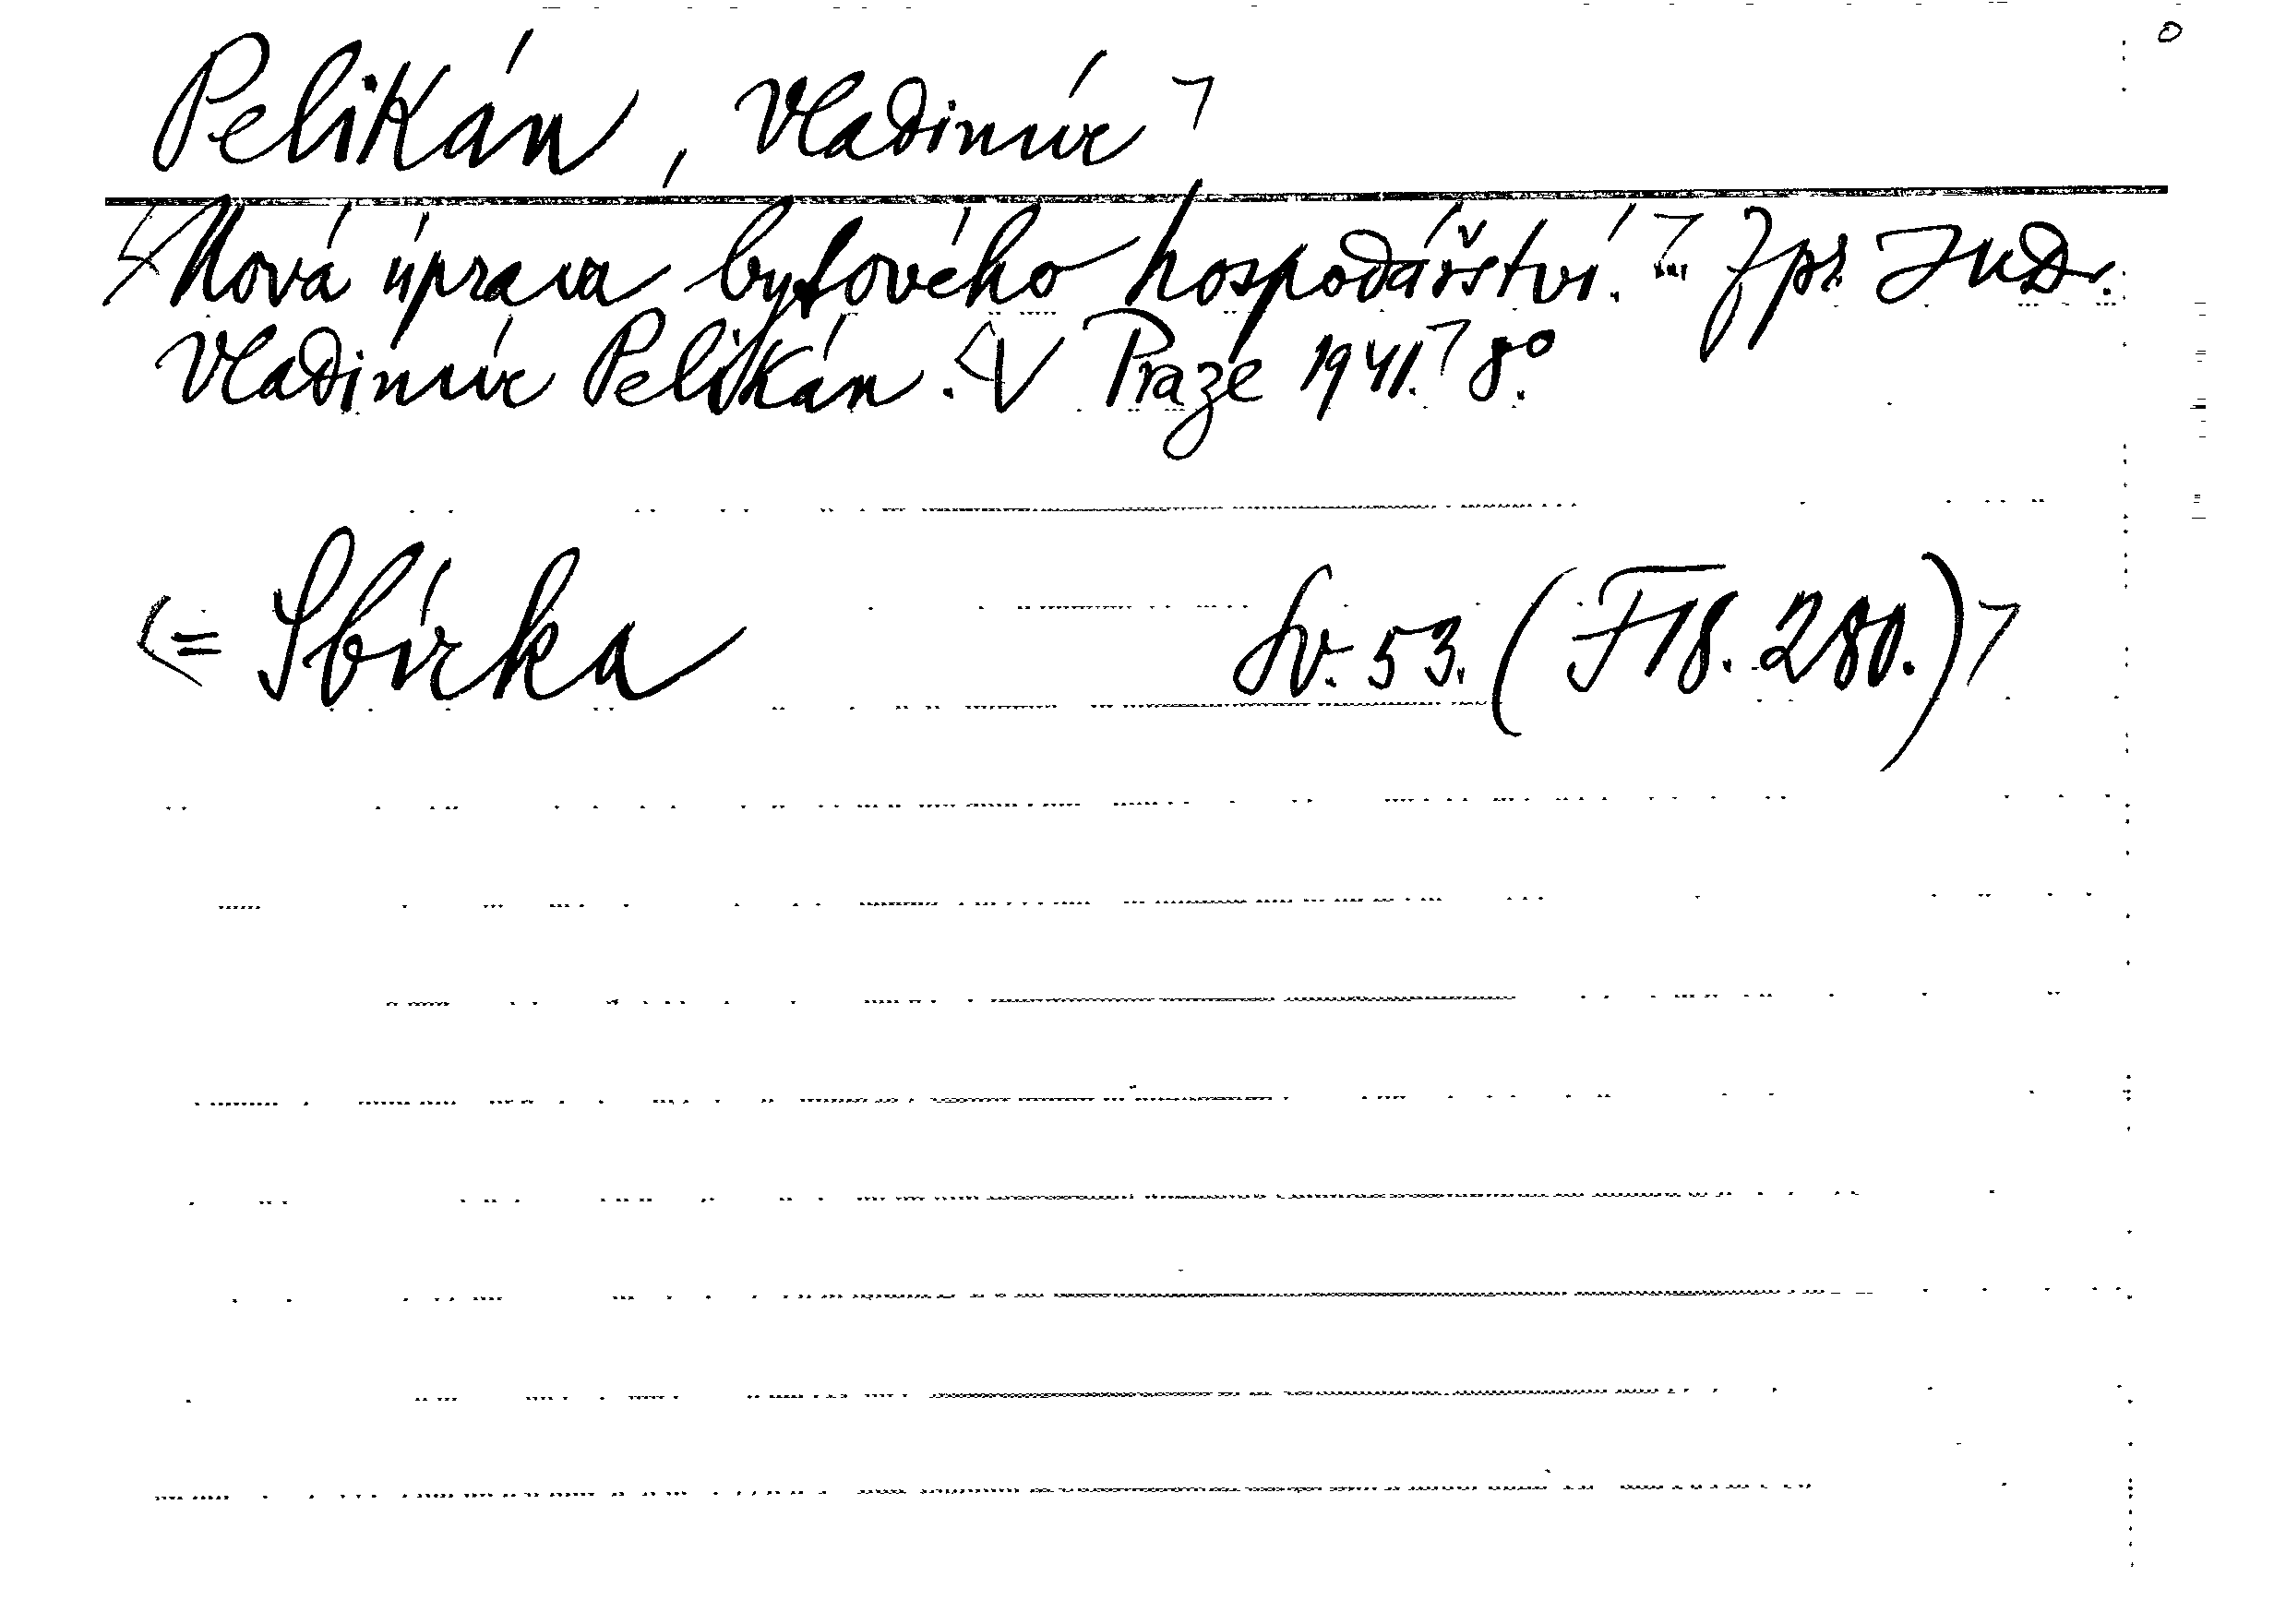 Pelikán, Vladimír
Nová úprava bytového hospodářství. Zpr. JUDr.
Vladimír Pelikán. V Praze 1941. 8°.
= Sbírka Sv. 53. (F 18. 280.)